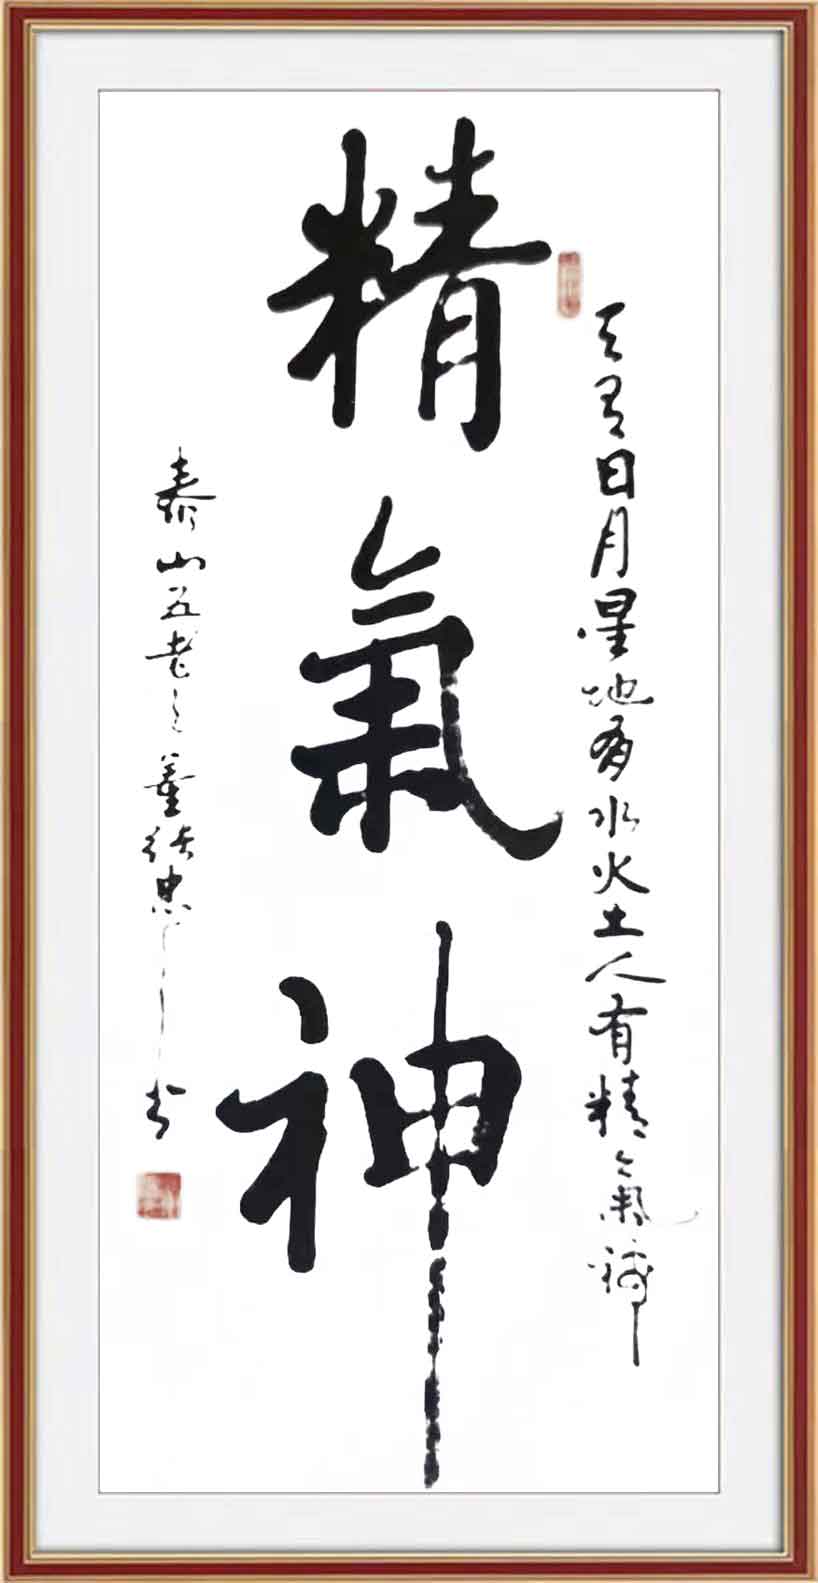 天有日月星地有水火土人有精氣神
精氣神
泰山五老之董忠书